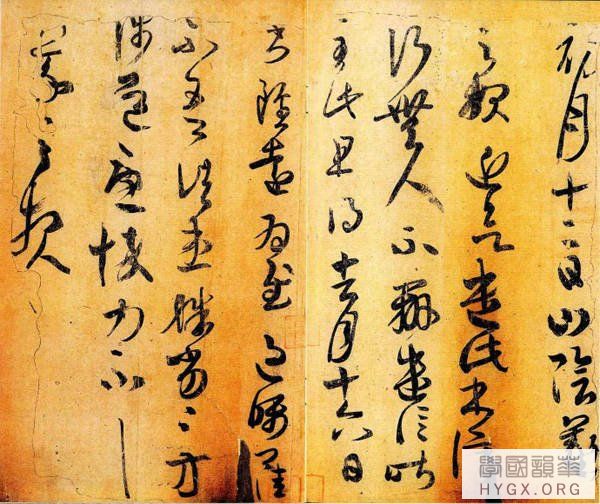 初月十二日山陰羲
之報近欲遣此書停
行無人不辦遣信昨
至此且得去月十六日
書雖遠為慰過囑卿佳
不吾諸患殊劣殊劣方
涉道憂悴力不具
羲之報
華韻國學
HYGX.ORG